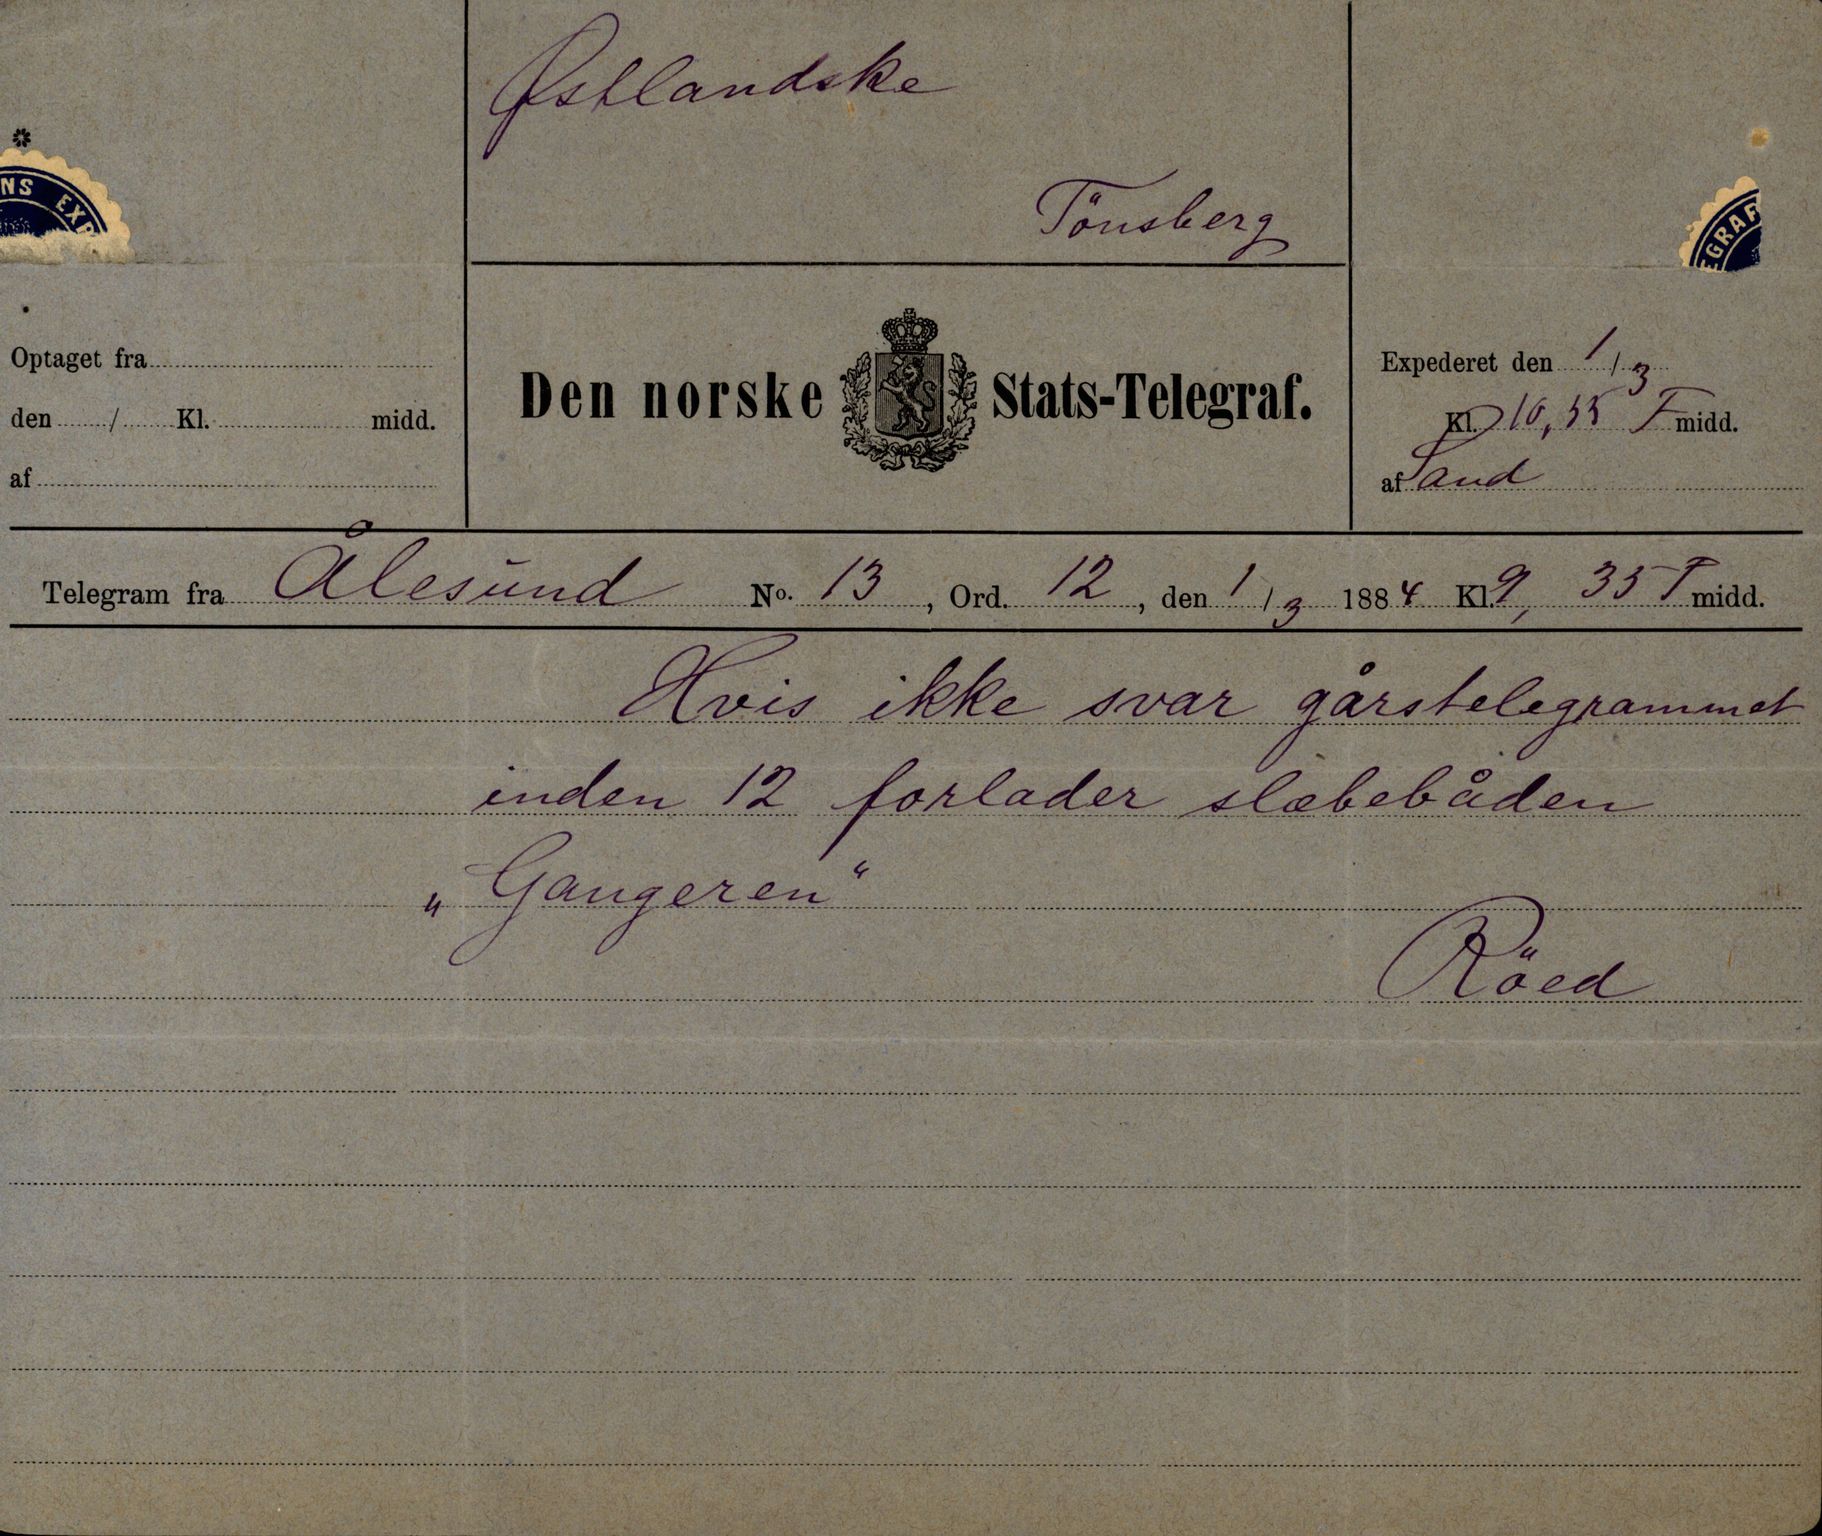 Østlandske
Tönsberg
NS EXP
EGRAF
Optaget fra
den / Kl. midd.
af
Den norske Stats-Telegraf.
Expederet den 1/3
Kl. 10,55 F midd.
af Sand
Telegram fra Ålesund No. 13, Ord. 12, den 1/3 1884 Kl. 9,35 F midd.
Hvis ikke svar gårstelegrammet
inden 12 forlader slæbebåden
„Gangeren“
Röed